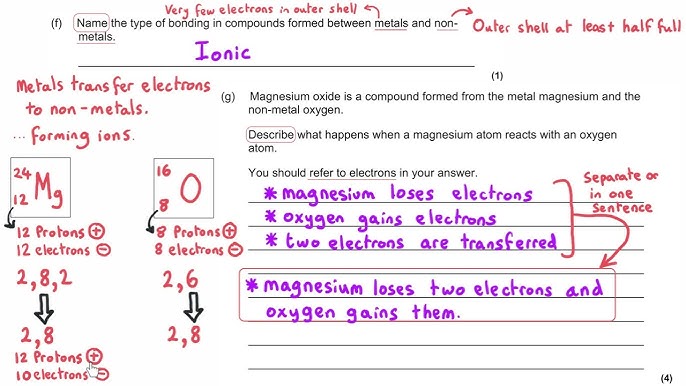 Very few electrons in outer shell
(f) Name the type of bonding in compounds formed between metals and non-
metals.
Outer shell at least half full
Ionic
(1)
Metals transfer electrons
to non-metals.
... forming ions.
(g) Magnesium oxide is a compound formed from the metal magnesium and the
non-metal oxygen.
Describe what happens when a magnesium atom reacts with an oxygen
atom.
You should refer to electrons in your answer.
* magnesium loses electrons
* oxygen gains electrons
* two electrons are transferred
Separate or
in one
Sentence
* magnesium loses two electrons and
oxygen gains them.
(4)
24
12 Mg
12 Protons +
12 electrons -
2,8,2
2,8
12 Protons +
10 electrons -
16
8 O
8 Protons +
8 electrons -
2,6
2,8